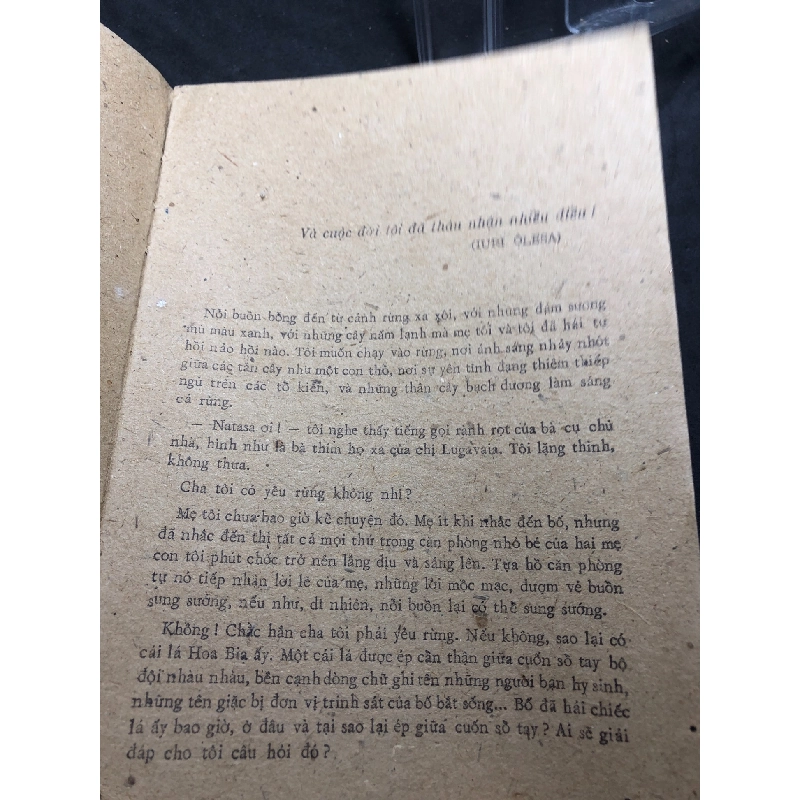 Và cuộc đời tôi đã thâu nhận nhiều điều !
(IURI ÔLESA)
Nỗi buồn bỗng đến từ cánh rừng xa xôi, với những đám sương
mù màu xanh, với những cây nấm lạnh mà mẹ tôi và tôi đã hái tự
hồi nảo hồi nào. Tôi muốn chạy vào rừng, nơi ánh sáng nhảy nhót
giữa các tán cây như một con thỏ, nơi sự yên tĩnh đang thiêm thiếp
ngủ trên các tổ kiến, và những thân cây bạch dương làm sáng
cả rừng.
— Natasa ơi ! — tôi nghe thấy tiếng gọi rành rọt của bà cụ chủ
nhà, hình như là bà thím họ xa của chị Lugavaia. Tôi lặng thinh,
không thưa.
Cha tôi có yêu rừng không nhỉ ?
Mẹ tôi chưa bao giờ kể chuyện đó. Mẹ ít khi nhắc đến bố, nhưng
đã nhắc đến thì tất cả mọi thứ trong căn phòng nhỏ bé của hai mẹ
con tôi phút chốc trở nên lắng dịu và sáng lên. Tựa hồ căn phòng
tự nó tiếp nhận lời lẽ của mẹ, những lời mộc mạc, đượm vẻ buồn
sung sướng, nếu như, dĩ nhiên, nỗi buồn lại có thể sung sướng.
Không ! Chắc hẳn cha tôi phải yêu rừng. Nếu không, sao lại có
cái lá Hoa Bia ấy. Một cái lá được ép cẩn thận giữa cuốn sổ tay bộ
đội nhàu nhàu, bên cạnh dòng chữ ghi tên những người bạn hy sinh,
những tên giặc bị đơn vị trinh sát của bố bắt sống... Bố đã hái chiếc
lá ấy bao giờ, ở đâu và tại sao lại ép giữa cuốn sổ tay ? Ai sẽ giải
đáp cho tôi câu hỏi đó ?